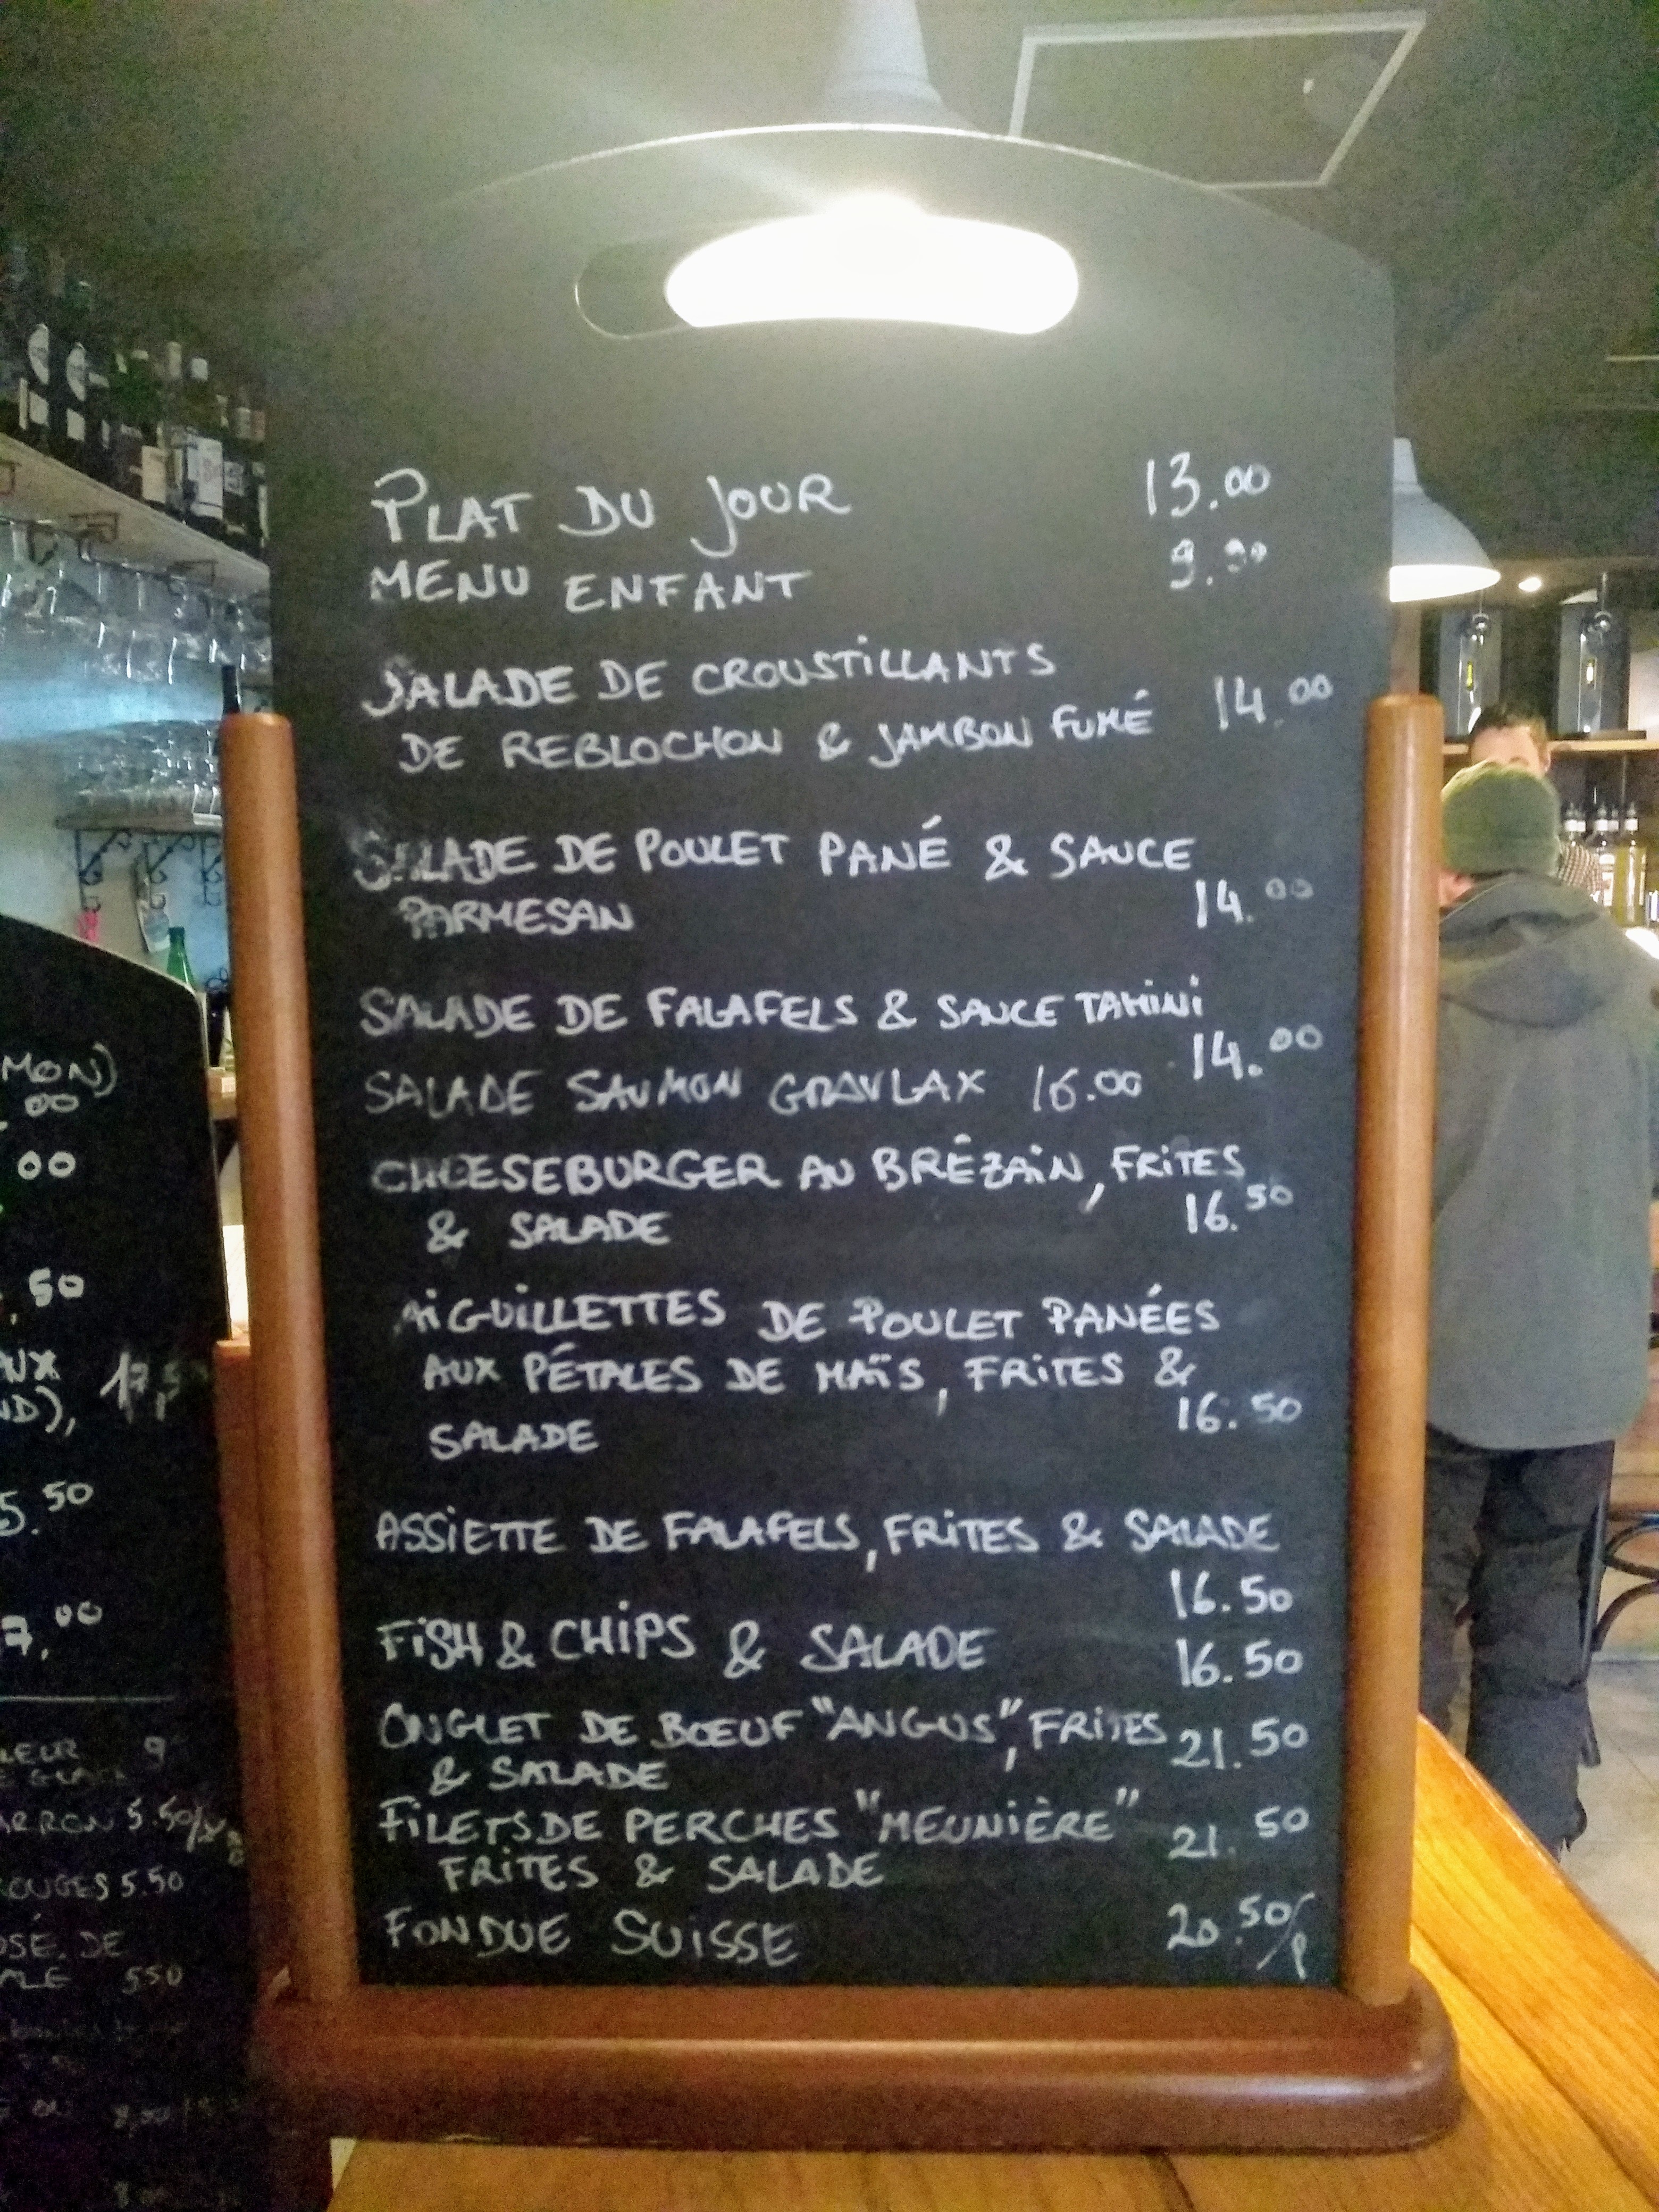 PLAT DU JOUR 13.00
MENU ENFANT 9.90
SALADE DE CROUSTiLLANTS
DE REBLOCHON & JAMBON FUMÉ 14.00
SALADE DE POULET PANÉ & SAUCE
PARMESAN 14.00
SALADE DE FALAFELS & SAUCE TAHiNi
14.00
SALADE SAUMON GRAVLAX 16.00
CHEESEBURGER AU BRÉZAiN, FRiTES
& SALADE 16.50
AiGUiLLETTES DE POULET PANÉES
AUX PÉTALES DE MAÏS, FRiTES &
SALADE 16.50
ASSiETTE DE FALAFELS, FRiTES & SALADE
16.50
FiSH & CHiPS & SALADE 16.50
ONGLET DE BŒUF "ANGUS", FRiTES 21.50
& SALADE
FiLETS DE PERCHES "MEUNiÈRE" 21.50
FRiTES & SALADE
FONDUE SUiSSE 20.50/P
MON)
00
00
.50
AUX
ND), 17,5
5.50
7,00
LEUR 9
ARRON 5.50/
OUGES 5.50
OSÉ, DE
550